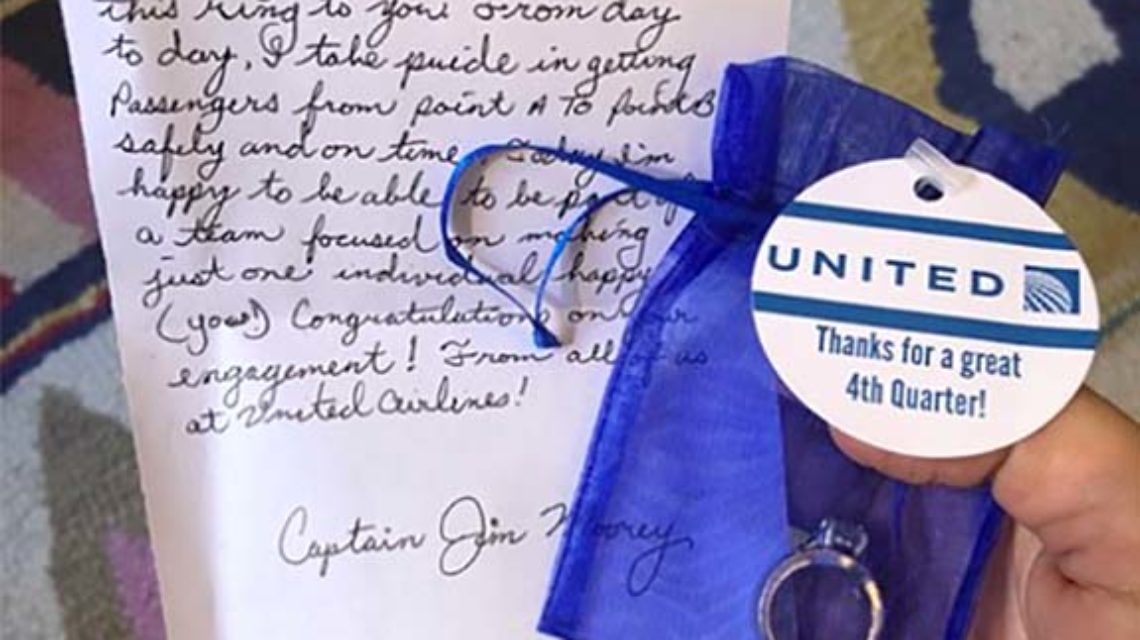 this ring to you! From day
to day, I take pride in getting
Passengers from point A to point B
safely and on time. Today I'm
happy to be able to be part of
a team focused on making
just one individual happy
(you!) Congratulations on your
engagement! From all of us
at United Airlines!
Captain Jim Moorey
UNITED
Thanks for a great
4th Quarter!